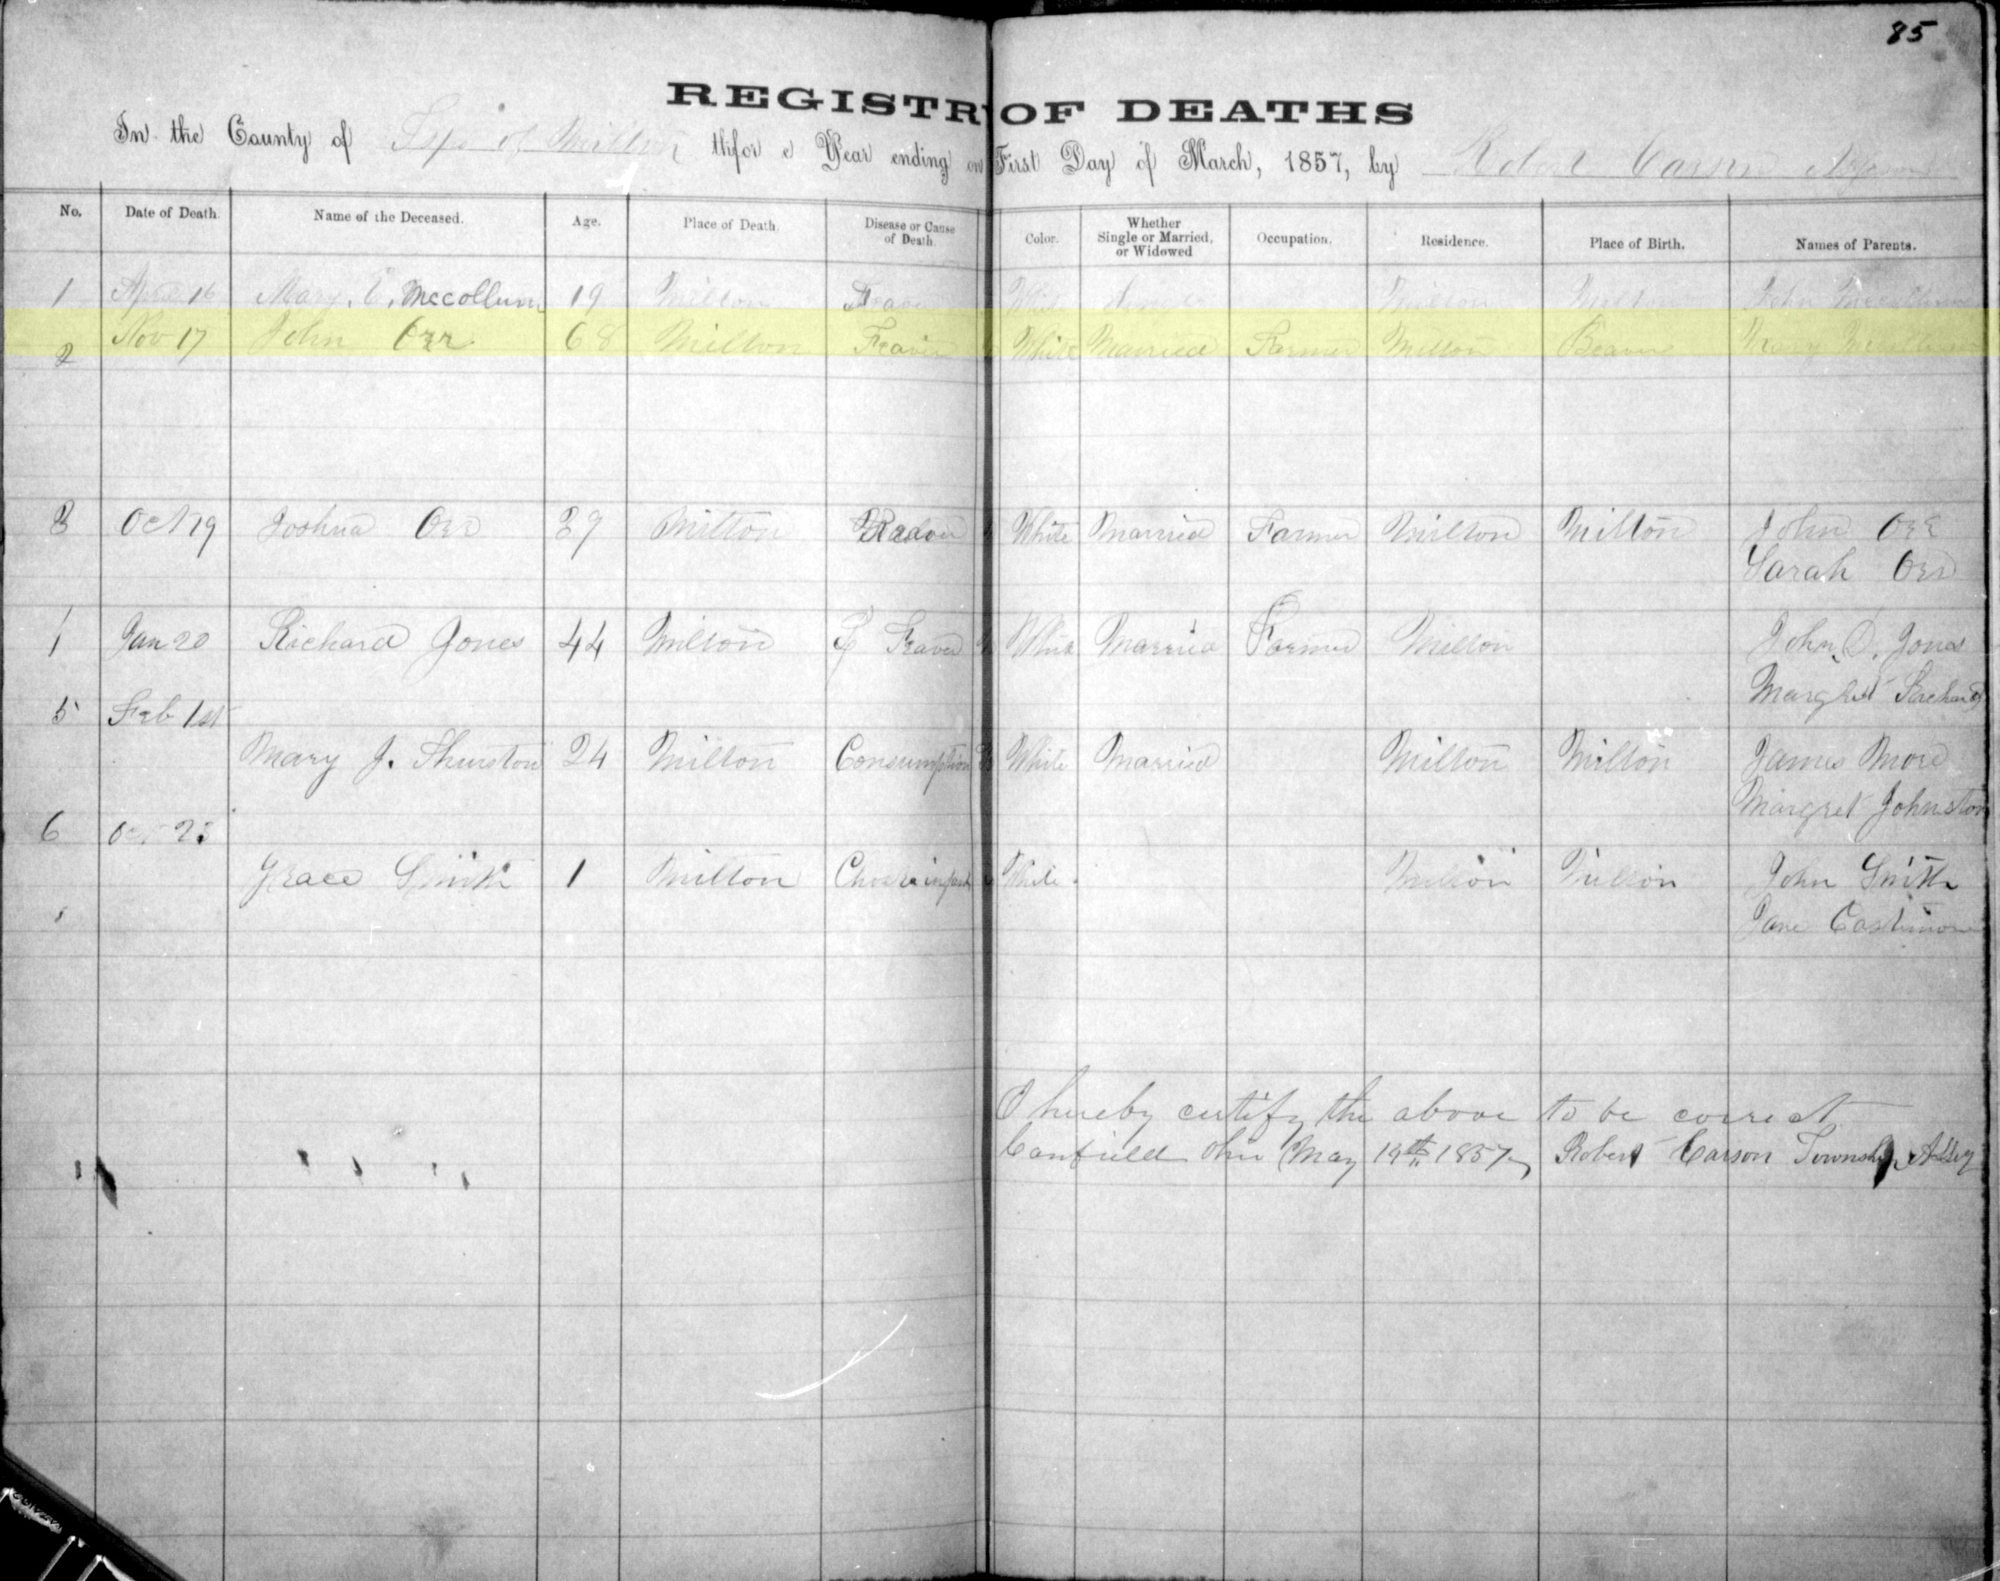 85
REGISTR OF DEATHS
In the County of Tsp of Milton thfor e Year ending on First Day of March, 1857, by Robert Carson
No. Date of Death. Name of the Deceased. Age. Place of Death. Disease or Cause of Death. Color. Whether Single or Married, or Widowed Occupation. Residence. Place of Birth. Names of Parents.
1 April 16 Mary. E. Mccollum 19 Milton Feaver White Milton Milton John Mccollum
2 Nov 17 John Orr 68 Milton Feaver White Married Farmer Milton Beaver Mary Mccollum
3 Oct 19 Joshua Orr 39 Milton White Married Farmer Milton Milton John Orr
Sarah Orr
1 Jan 20 Richard Jones 44 Milton Feaver White Married Farmer Milton John D. Jones
Margret
5 Feb 1st
Mary J. Thurston 24 Milton Consumption White Married Milton Milton James More
Margret Johnston
6 Oct
Grace Smith 1 Milton White Milton Milton John Smith
Jane
I hereby certify the above to be correct
Canfield Ohio May 19th 1857 Robert Carson Township